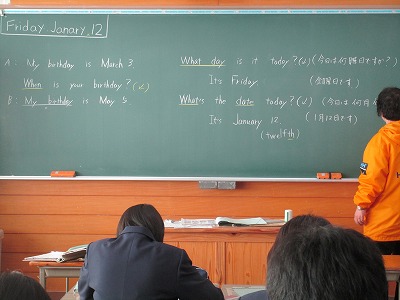 Friday Janary 12
A: My birthday is March 3.
When is your birthday? (↙)
B: My birthday is May 5.
What day is it today? (↙) (今日は何曜日ですか?)
It's Friday. (金曜日です)
What's the date today? (↙) (今日は何月
It's January 12. (1月12日です)
(twelfth)